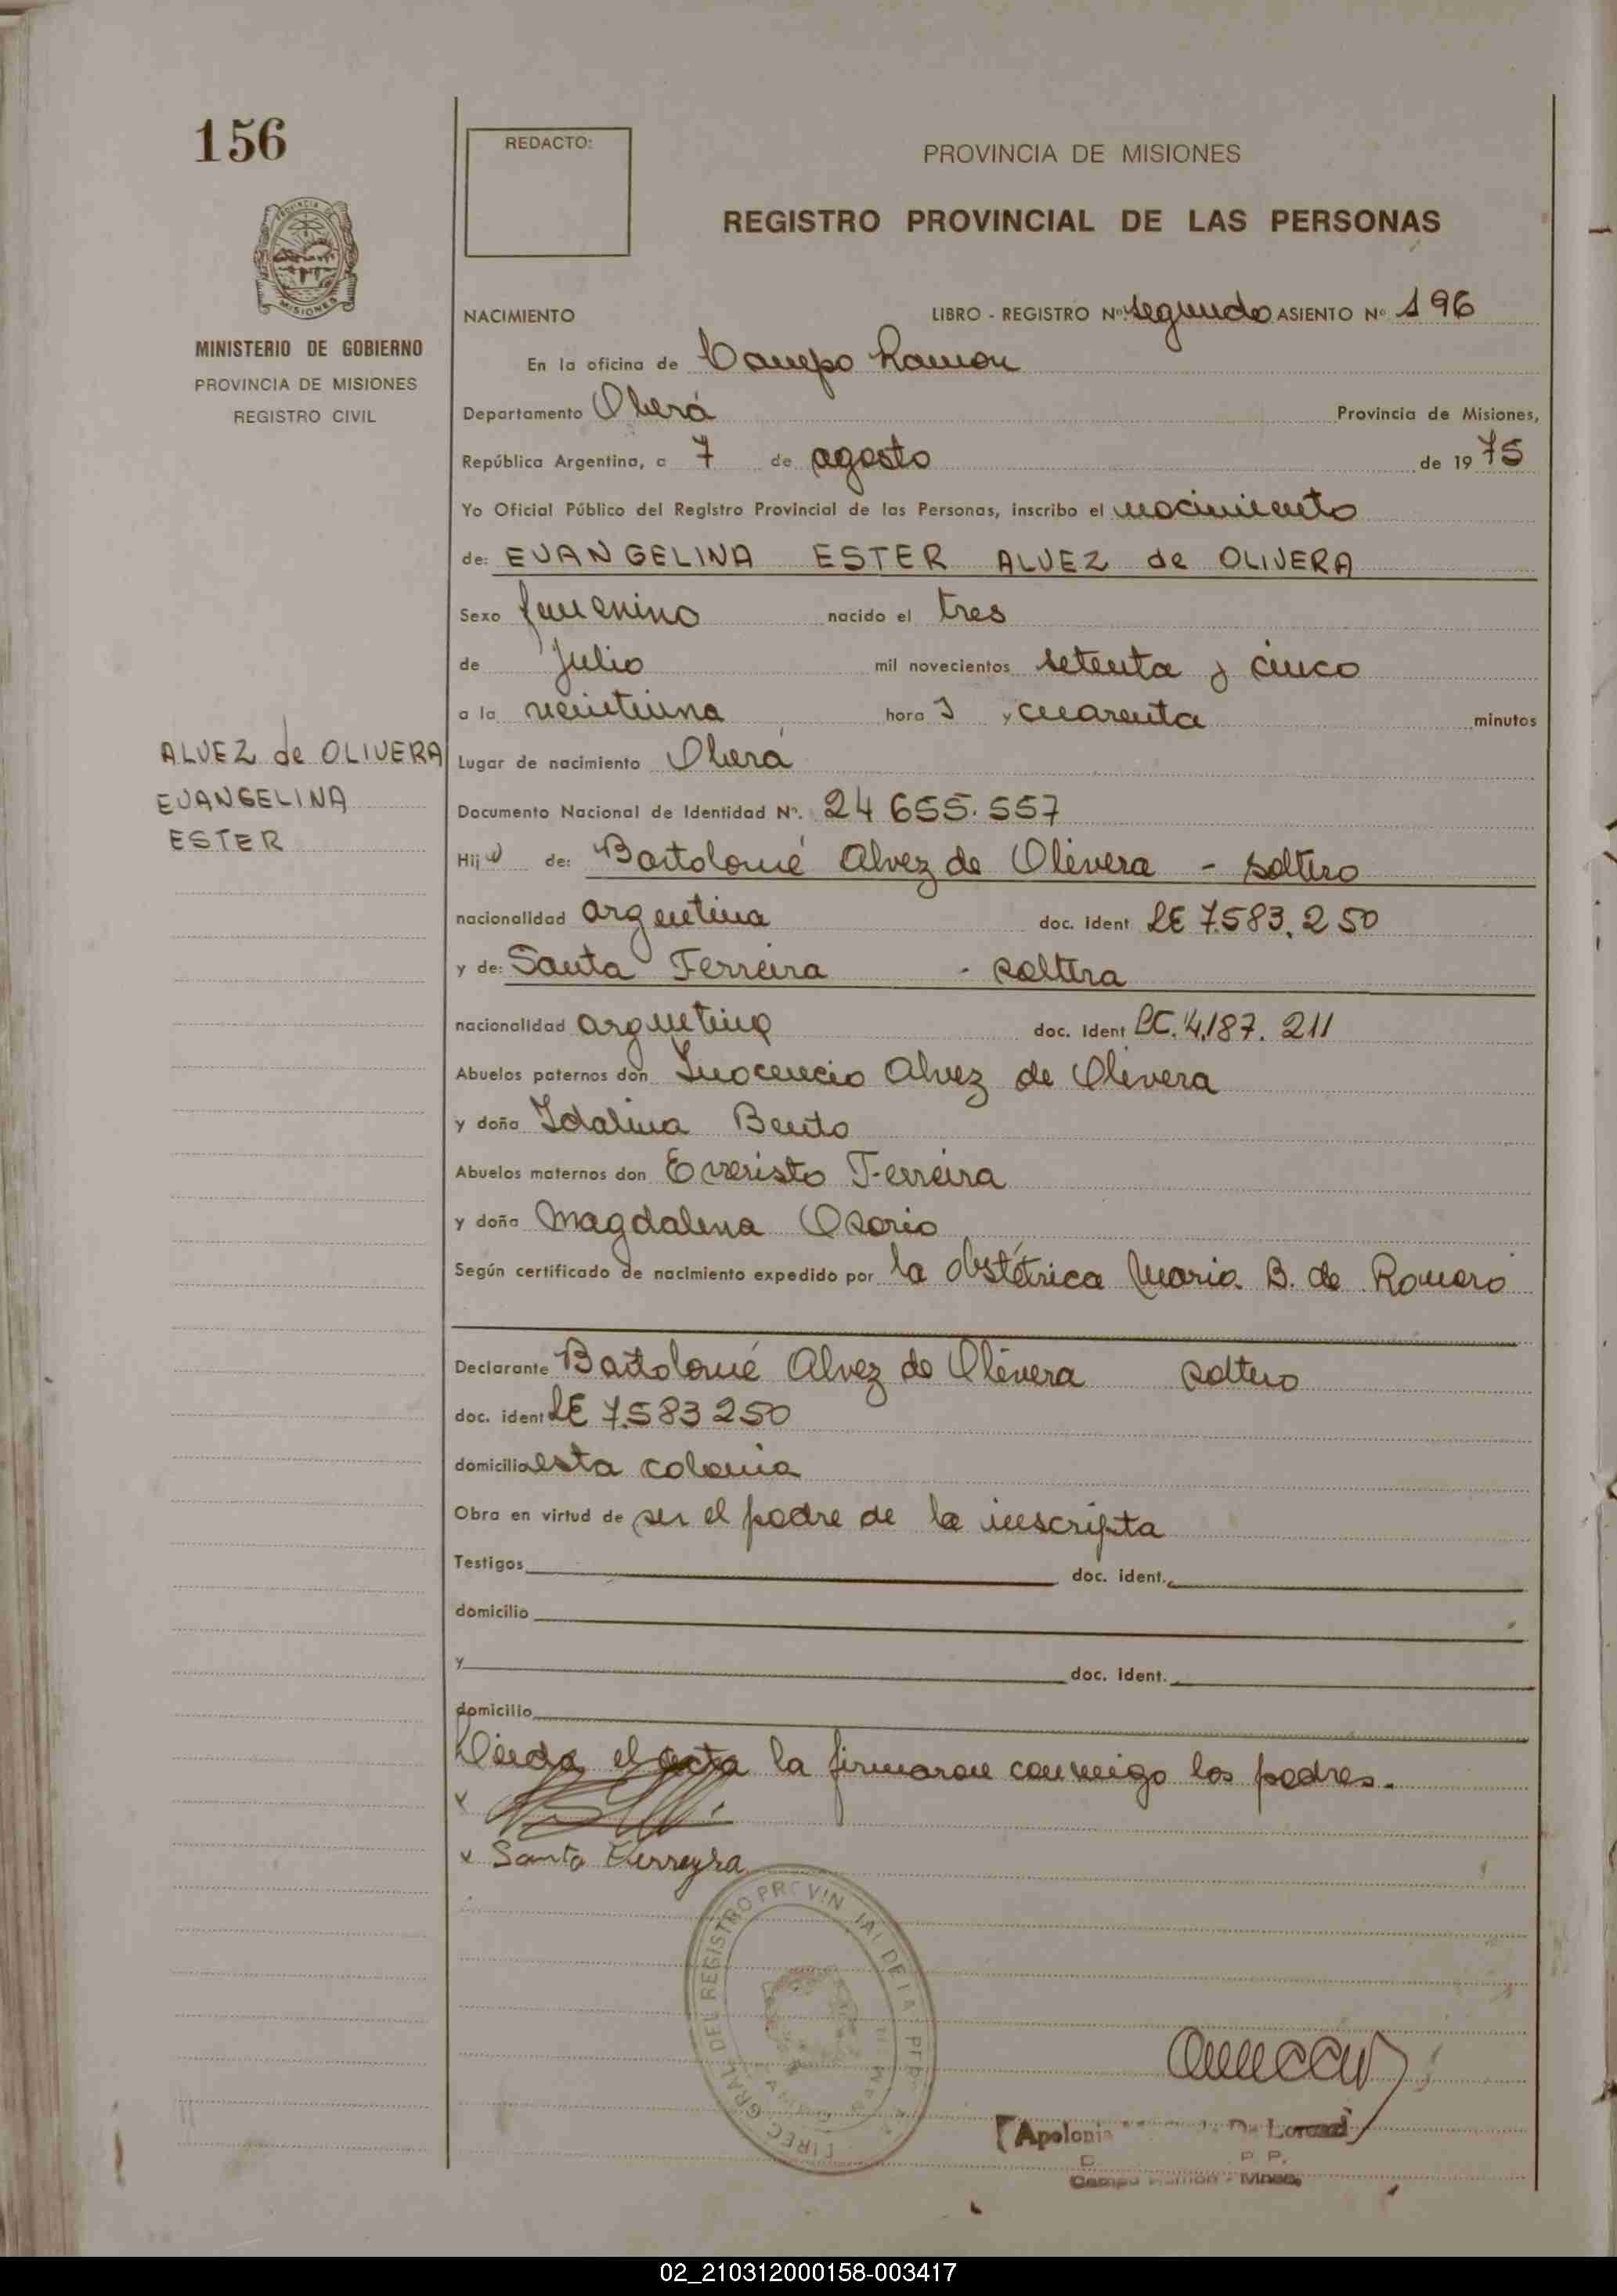 156
REDACTO:
PROVINCIA DE MISIONES
REGISTRO PROVINCIAL DE LAS PERSONAS
PROVINCIA DE
MISIONES
MINISTERIO DE GOBIERNO
PROVINCIA DE MISIONES
REGISTRO CIVIL
NACIMIENTO LIBRO - REGISTRO Nº segundo ASIENTO Nº 196
En la oficina de Campo Ramon
Departamento Oberá Provincia de Misiones,
República Argentina, a 7 de agosto de 1975
Yo Oficial Público del Registro Provincial de las Personas, inscribo el nacimiento
de: EVANGELINA ESTER ALVEZ de OLIVERA
Sexo femenino nacido el tres
de Julio mil novecientos setenta y cinco
a la veintiuna hora s y cuarenta minutos
ALVEZ de OLIVERA
EVANGELINA
ESTER
Lugar de nacimiento Oberá
Documento Nacional de Identidad Nº. 24 655.557
Hija de: Bartolomé Alvez de Olivera - soltero
nacionalidad argentina doc. Ident LE 7.583.250
y de: Santa Ferreira - soltera
nacionalidad argentina doc. Ident LC. 4.187.211
Abuelos paternos don Inocencio Alvez de Olivera
y doña Idalina Bento
Abuelos maternos don Evaristo Ferreira
y doña Magdalena Osorio
Según certificado de nacimiento expedido por la obstétrica Maria B. de Romero
Declarante Bartolomé Alvez de Olivera soltero
doc. ident LE 7.583250
domicilio esta colonia
Obra en virtud de ser el padre de la inscripta
Testigos doc. ident.
domicilio
y doc. ident.
domicilio
Leida el acta la firmaron conmigo los padres.
x
x Santa Ferreyra
DIREC. GRAL. DEL REGISTRO PROVINCIAL DE LAS
Apolonia De
P. P.
Campo Ramón - Mnes.
02_210312000158-003417